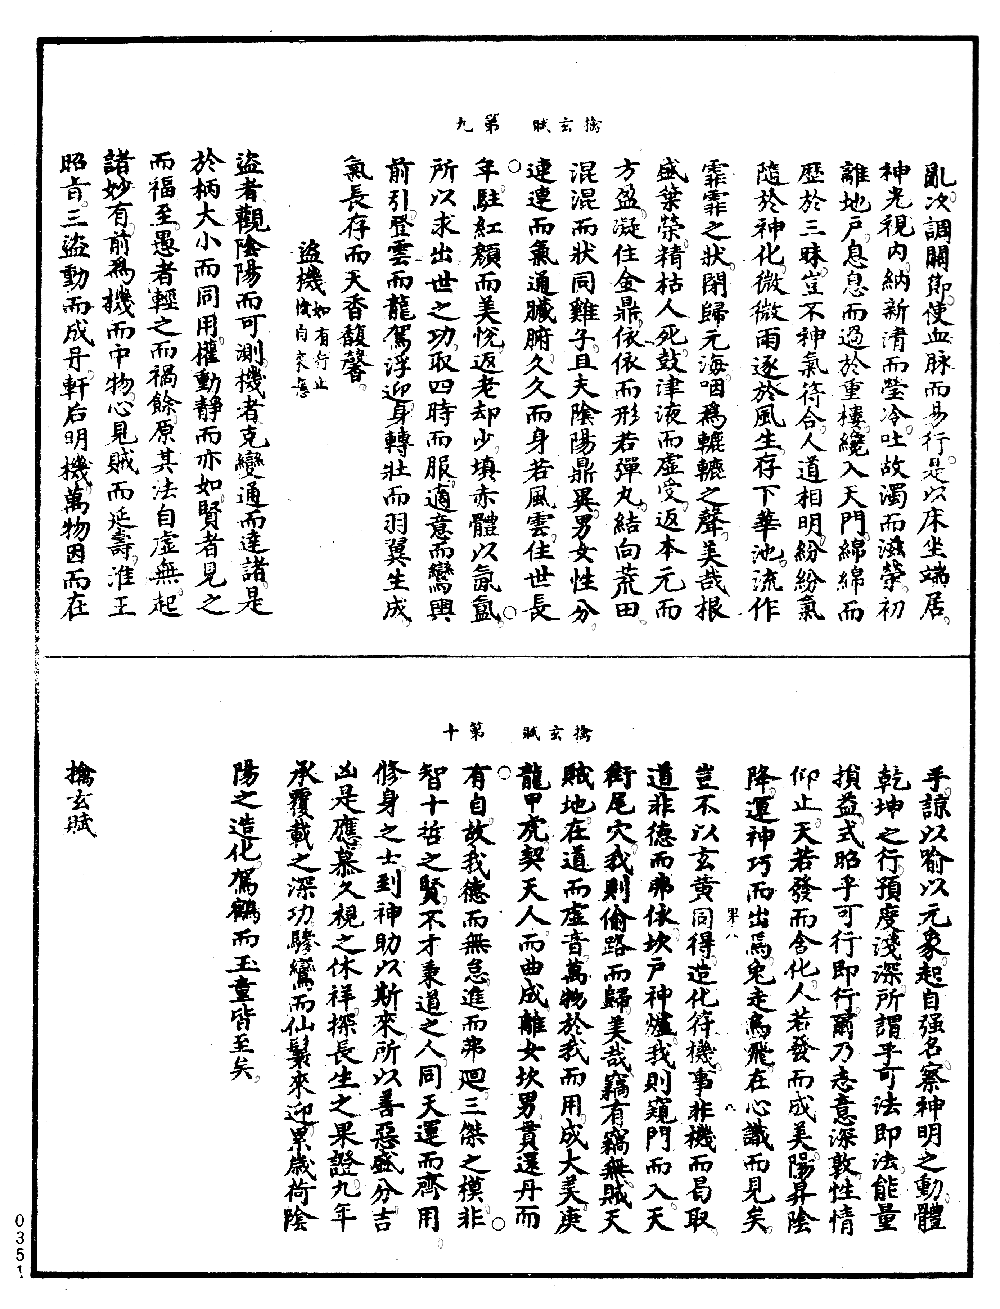 擒玄賦　第九
亂次調關節使血脉而易行是以床坐端居
神光視內納新清而瑩冷吐故濁而滋榮初
離地戶息息而過於重樓纔入天門綿綿而
歷於三昧豈不神氣符合人道相明紛紛氣
隨於神化微微雨逐於風生存下華池流作
霏霏之狀閉歸元海咽為轆轤之聲美哉根
盛葉榮精枯人死鼓津液而虛受返本元而
方盈凝住金鼎依依而形若彈丸結向荒田
混混而狀同雞子且夫陰陽鼎異男女性分
連連而氣通臟腑久久而身若風雲住世長
年駐紅顏而美悅返老却少填赤體以氤氳
所以求出世之功取四時而服適意而鸞輿
前引登雲而龍駕浮迎身轉壯而羽翼生成
氣長存而天香馥馨
盜機
盜者觀陰陽而可測機者克變通而達諸是
於柄大小而同用權動靜而亦如賢者見之
而福至愚者輕之而禍餘原其法自虛無起
諸妙有前為機而中物心見賊而延壽淮王
昭旨三盜動而成丹軒后明機萬物因而在
擒玄賦　第十
乎諒以喻以元象起自强名察神明之動體
乾坤之行預度淺深所謂乎可法即法能量
損益式昭乎可行即行爾乃志意深敦性情
仰止天若發而含化人若發而成美陽昇陰
降運神巧而出焉兔走烏飛在心識而見矣
豈不以玄黄同得造化符機事非機而曷取
道非德而弗依坎戶神爐我則窺門而入天
街尾穴我則偷路而歸美哉竊有竊無賊天
賊地在道而虛音萬物於我而用成大美庚
龍甲虎契天人而曲成離女坎男貫還丹而
有自故我德而無怠進而弗迴三傑之模非
智十哲之賢不才秉道之人同天運而齊用
修身之士到神助以斯來所以善惡盛分吉
凶是應慕久視之休祥探長生之果證九年
承覆載之深功驂鸞而仙鬟來迎累歲荷陰
陽之造化駕鶴而玉童皆至矣
擒玄賦
0351